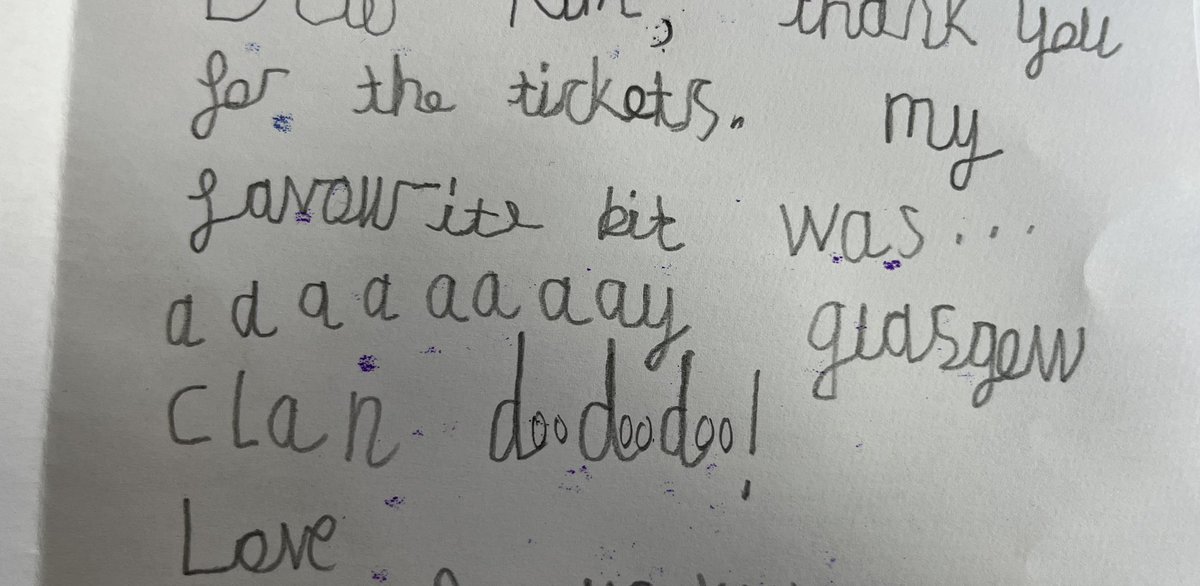 thank you
for the tickets. my
favourite bit was...
adaaaaaaay glasgow
clan doodoodoo!
Love